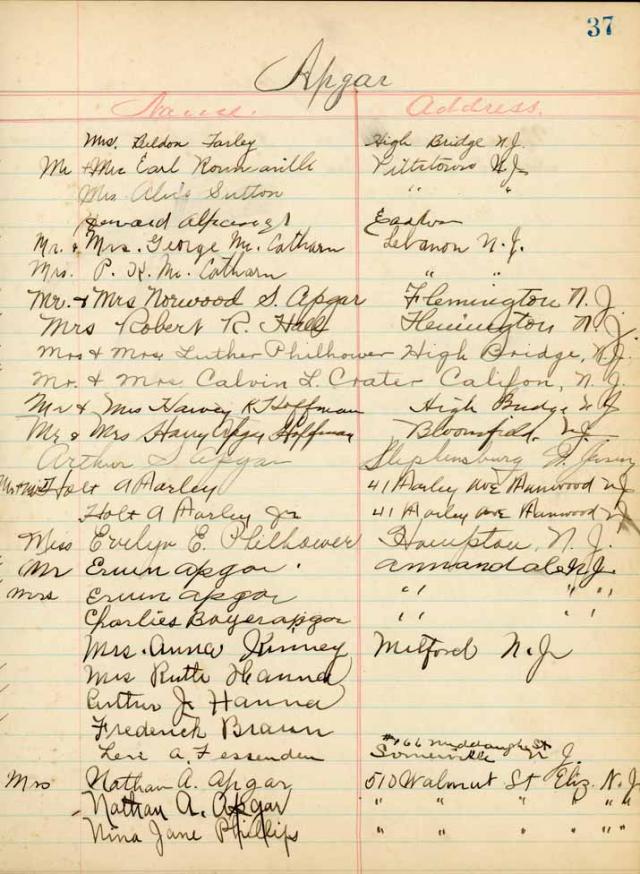 37
Apgar
Name. Address.
Mrs. Beldon Farley High Bridge N.J.
Mr & Mrs Earl Pittstown N.J.
Mrs Sutton " "
Howard Easton
Mr. & Mrs. George Mc. Catharn Lebanon N.J.
Mrs. P. K. Mc. Catharn " "
Mr. & Mrs Norwood S. Apgar Flemington N.J.
Mrs Robert R. Hall Flemington N.J.
Mrs & Mrs Luther Philhower High Bridge, N.J.
Mr. & Mrs Calvin L. Crater Califon, N.J.
Mr & Mrs Harvey K Hoffman High Bridge N J
Mr & Mrs Harry Apgar Hoffman Bloomfield, N.J.
Arthur S Apgar Stephensburg N. Jersey
Holt A Harley 41 Harley Ave N J
Holt A Harley Jr 41 Harley Ave N J
Miss Evelyn E. Philhower Hampton, N.J.
Mr Erwin apgar. annandale N.J.
Mrs Erwin apgar " " "
Charlies Boyer apgar " " "
Mrs. Anna Kinney Milford N.J
Mrs Ruth Hanna
Arthur J. Hanna
Frederick Braun
Levi A. Fessenden #166 Middaugh St
Somerville N J.
Mrs Nathan A. Apgar 510 Walnut St Eliz. N.J.
Nathan A. Apgar " " " " "
Nina Jane Phillips " " " " "